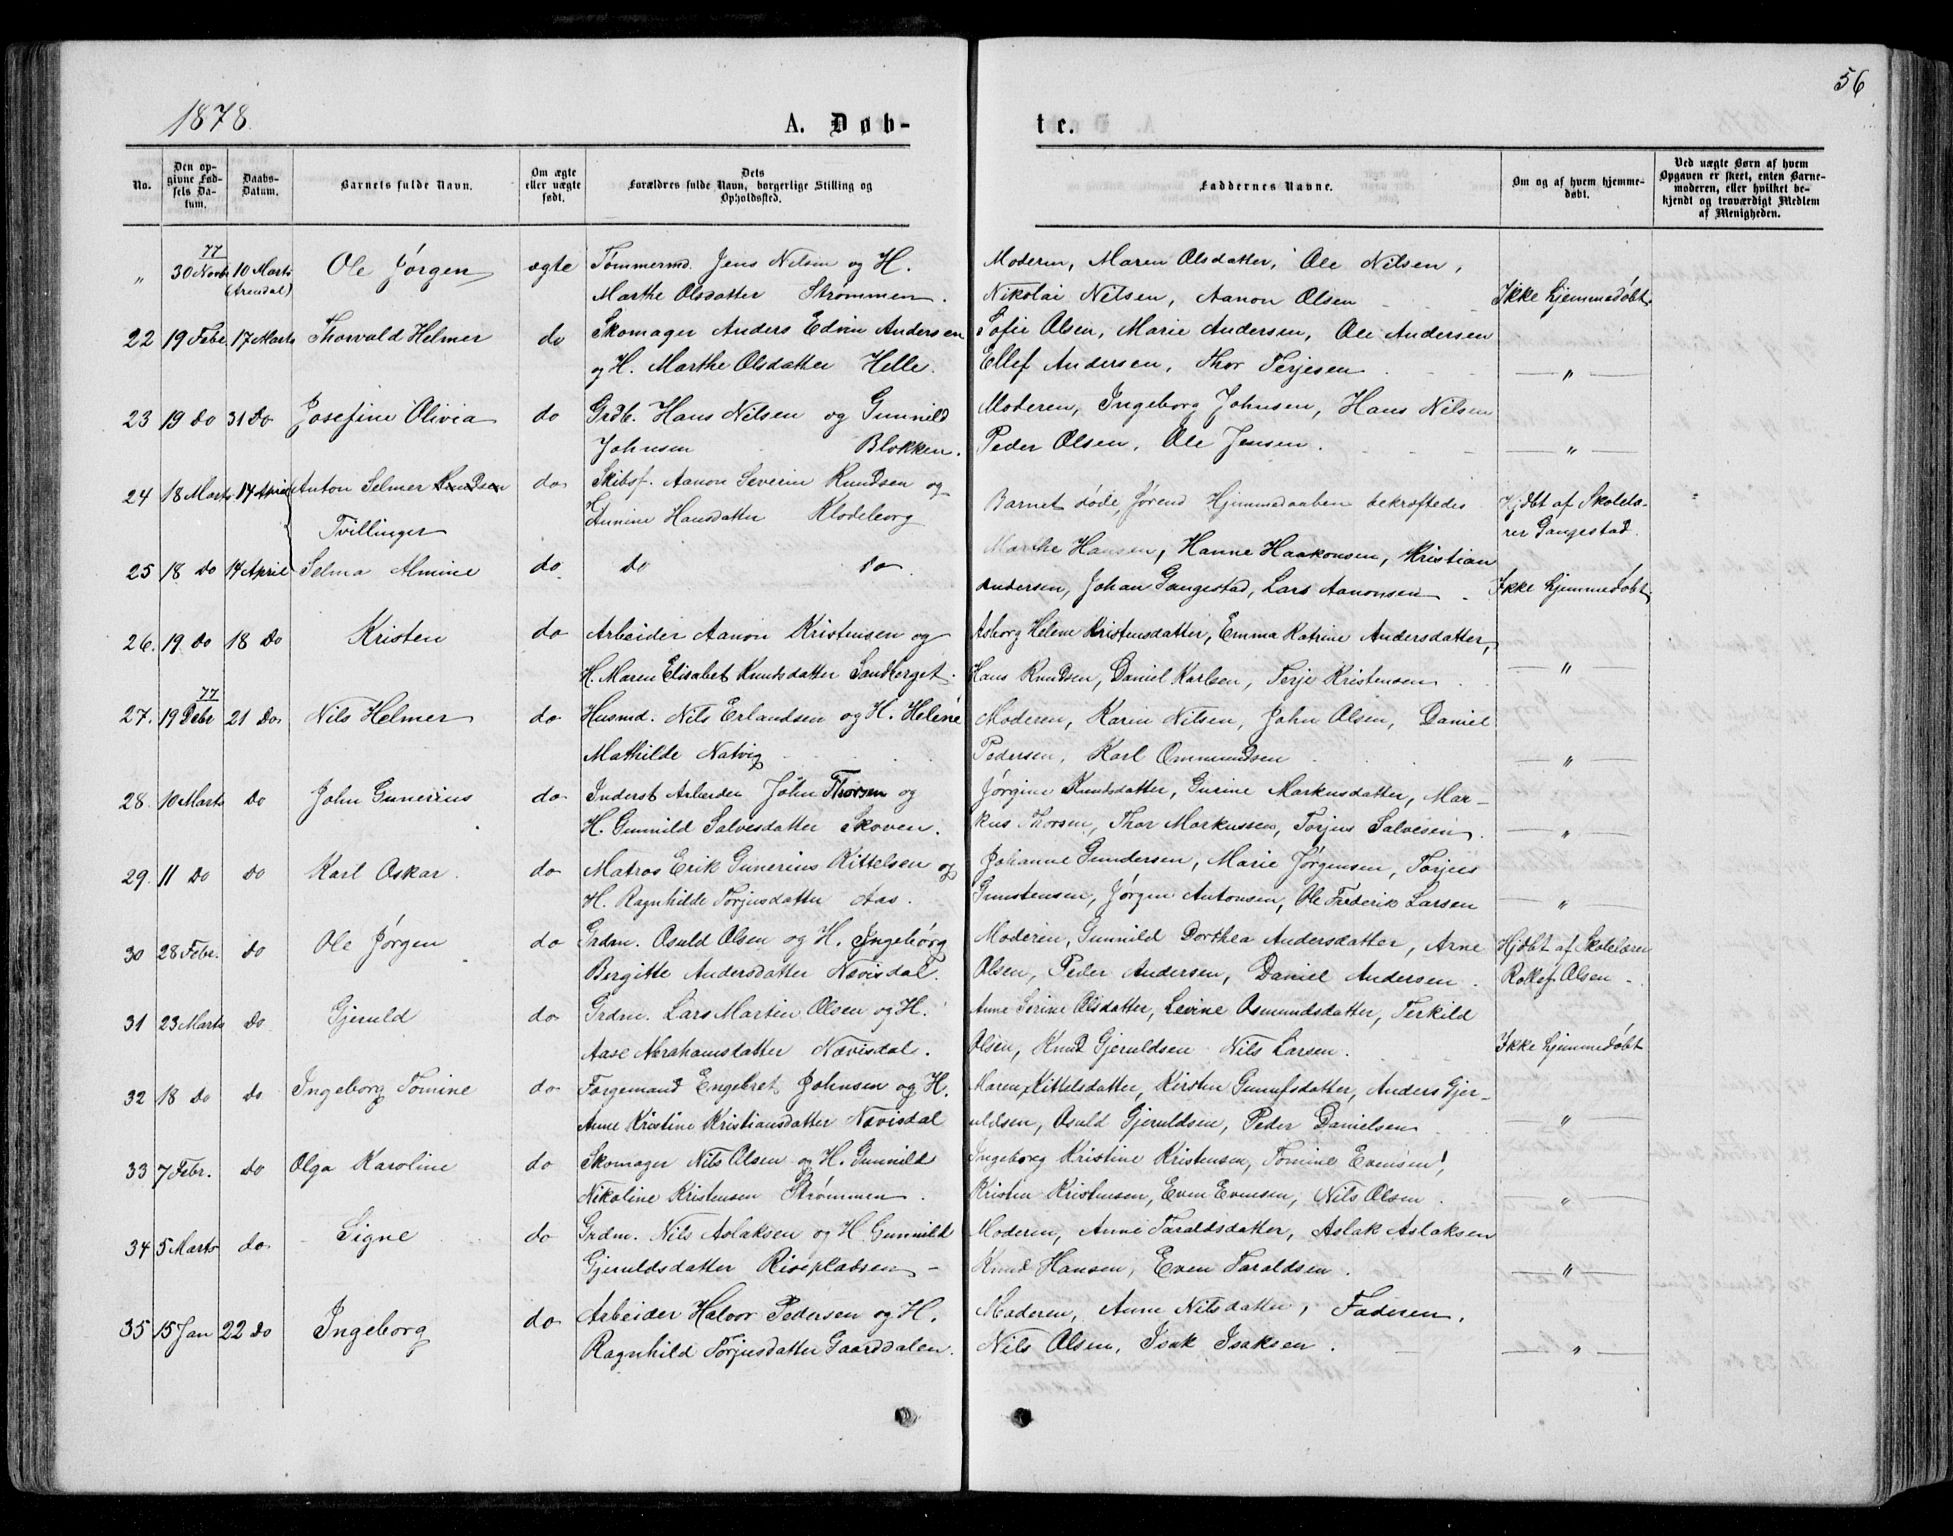 1878.
A. Døb-
te.
56
No.
Den op-
givne Fød-
sels Da-
tum.
Daabs-
Datum.
Barnets fulde Navn.
Om ægte
eller uægte
født.
Dets
Forældres fulde Navn, borgerlige Stilling og
Opholdssted.
Faddernes Navne.
Om og af hvem hjemme-
døbt.
Ved uægte Børn af hvem
Opgaven er skeet, enten Barne-
moderen, eller hvilket be-
kjendt og troværdigt Medlem
af Menigheden.
77
" 30 Novbr 10 Marts Ole Jörgen ægte Tømmermd. Jens Nilsen og H. Moderen, Maren Olsdatter, Ole Nilsen,
(Arendal) Marthe Olsdatter Strømmen. Nikolai Nilsen, Aanon Olsen Ikke hjemmedøbt.
22 19 Febr. 17 Marts Thorvald Helmer do Skomager Anders Edvin Andersen Sofie Olsen, Marie Andersen, Ole Andersen
og H. Marthe Olsdatter Helle. Ellef Andersen, Thor Terjesen — " —
23 19 do 31 Do Josefine Olivia do Grdb. Hans Nilsen og Gunnild Moderen, Ingeborg Johnsen, Hans Nilsen
Johnsen Blokken. Peder Olsen, Ole Jensen. — " —
24 18 Marts 14 April Anton Selmer Knudsen do Skibsf. Aanon Severin Knudsen og Barnet døde førend Hjemmedaaben bekræftedes Hjdbt af Skolelæ-
Tvillinger H. Annine Hansdatter Klodeborg rer Gangestad.
25 18 Do 14 April Selma Almine do do do Marthe Hansen, Hanne Haakonsen, Kristian
Andersen, Johan Gangestad, Lars Aanonsen Ikke hjemmedøbt.
26. 19 Do 18 Do Kristen do Arbeider Aanon Kristensen og Asborg Helene Kristensdatter, Emma Katrine Andersdatter,
H. Maren Elisabet Knudsdatter Sandberget. Hans Knudsen, Daniel Karlsen, Terje Kristensen — " —
77
27. 19 Debr 21 Do Nils Helmer do Husmd. Nils Erlandsen og H. Helene Moderen, Karin Nilsen, John Olsen, Daniel
Mathilde Natvig Pedersen, Karl Ommundsen — " —
28. 10 Marts Do John Gunerius do Inderst Arbeider John Thorsen og Jörgine Knudsdatter, Gurine Markusdatter, Mar-
H. Gunnild Salvesdatter Skoven. kus Thorsen, Thor Markussen, Torjus Salvesen. — " —
29. 11 Do Do Karl Oskar. do Matros Erik Gunerius Kittelsen og Johanne Gundersen, Marie Jørgensen, Torjus
H. Ragnhilde Torjusdatter Aas. Gunstensen, Jørgen Antonsen, Ole Frederik Larsen — " —
30 28 Febr. do Ole Jörgen do Grdm. Osuld Olsen og H. Ingebórg Moderen, Gunnild Dorthea Andersdatter, Arne Hjdbt af Skolelærer
Borgitte Andersdatter Nævisdal. Olsen, Peder Andersen, Daniel Andersen. Rollef Olsen -
31 23 Marts Do Gjeruld do Grdm. Lars Martin Olsen og H. Anne Serine Olsdatter, Levine Osmundsdatter, Terkild
Aase Abrahamsdatter Nævisdal. Olsen, Knud Gjeruldsen Nils Larsen. Ikke hjemmedøbt
32 18 Do Do Ingeborg Tomine do Forgemand Engebret Johnsen og H. Maren Kittelsdatter, Kirsten Gunufsdatter, Anders Gjer-
Anne Kristine Kristiansdatter Nævisdal uldsen, Osuld Gjeruldsen, Peder Danielsen — " —
33 7 Febr. do Olga Karoline do Skomager Nils Olsen og H. Gunnild Ingeborg Kristine Kristensen, Tomine Evensen,
Nikoline Kristensen Strømmen. Kristen Kristensen, Even Evensen, Nils Olsen. — " —
34 5 Marts do Signe do Grdm. Nils Aslaksen og H. Gunnild Moderen, Anne Taraldsdatter, Aslak Aslaksen
Gjeruldsdatter Risepladsen - Knud Hansen, Even Taraldsen. — " —
35 15 Jan 22 do Ingeborg do Arbeider Halvor Pedersen og H. Moderen, Anne Nilsdatter, Faderen,
Ragnhild Torjusdatter Gaarddalen. Nils Olsen, Isak Isaksen. — " —